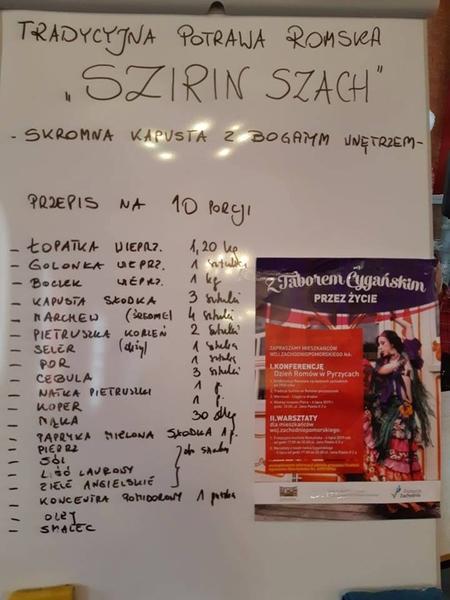 TRADYCYJNA POTRAWA ROMSKA
„SZIRIN SZACH"
- SKROMNA KAPUSTA Z BOGATYM WNĘTRZEM -
PRZEPIS NA 10 PORCJI
- ŁOPATKA WIEPRZ. 1,20 kg
- GOLONKA WIEPRZ. 1 sztuka
- BOCZEK WIEPRZ. 1 kg
- KAPUSTA SŁODKA 3 sztuki
- MARCHEW 4 sztuki
- PIETRUSZKA KORZEŃ 2 sztuki
- SELER (duży) 1 sztuka
- POR 1 sztuka
- CEBULA 3 sztuki
- NATKA PIETRUSZKI 1 p.
- KOPER 1 p.
- MĄKA 30 dkg
- PAPRYKA MIELONA SŁODKA 1 p.
- PIEPRZ
- SÓL
- LIŚĆ LAUROWY
- ZIELE ANGIELSKIE
do smaku
- KONCENTRAT POMIDOROWY 1 puszka
- OLEJ
- SMALEC
Z Taborem Cygańskim
PRZEZ ŻYCIE
ZAPRASZAMY MIESZKAŃCÓW
WOJ.ZACHODNIOPOMORSKIEGO NA:
I.KONFERENCJĘ
Dzień Romów w Pyrzycach
II.WARSZTATY
dla mieszkańców
woj.zachodniopomorskiego: